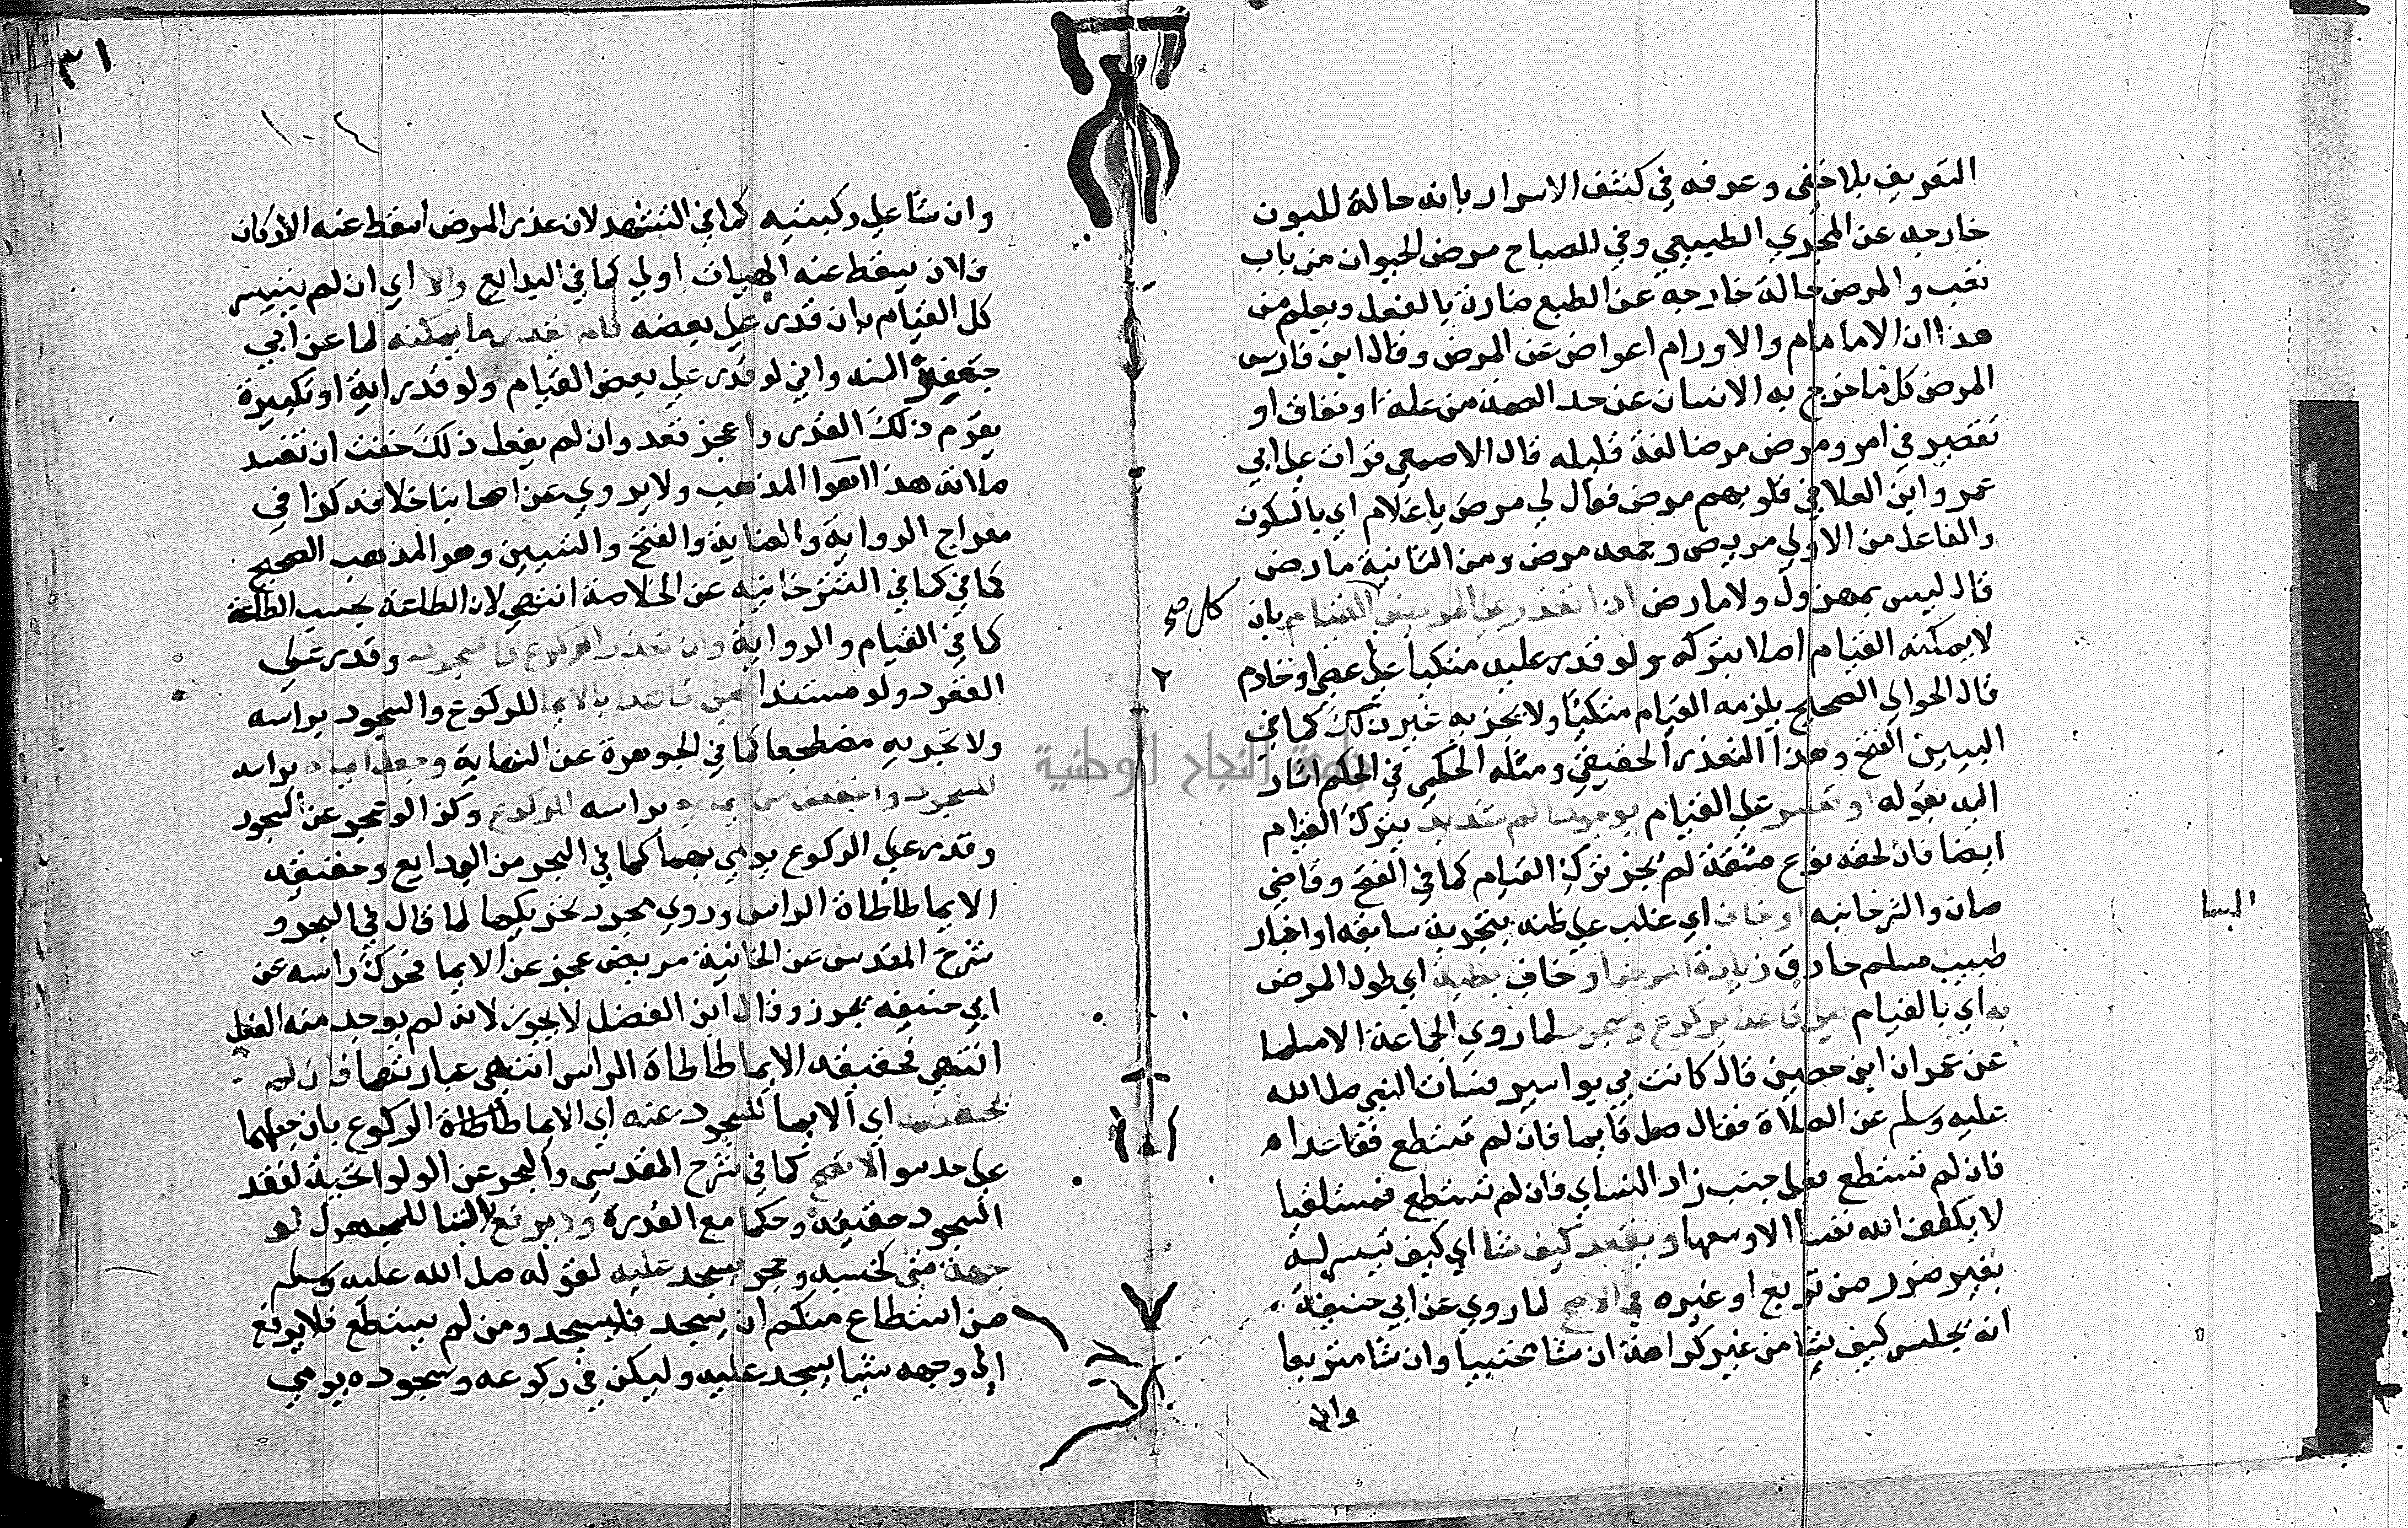 التعريف بلا خفى وعرفه في كشف الاسرار بانه حالة للبدن
خارجه عن المجري الطبيعي وفي المصباح مرض الحيوان من باب
تعب والمرض حالة خارجه عن الطبع ضارة بالفعل ويعلم من
هذا ان الامامام والاورام اعراض عن المرض وقال ابن فارس
المرض كل ما خرج به الانسان عن حد الصحة من علة او نفاق او
تقصير في امر ومرض مرضا لغة قليله قال الاصمعي قرات علي ابي
عمرو ابن العلا في قلوبهم مرض فقال لي مرض يا غلام اي بالسكون
والفاعل من الاولي مريض وجمعه مرضي ومن الثانية مارض
قال ليس بمهزول ولا مارض اذا تعذر علي المريض كل القيام بان
كل صح
لا يمكنه القيام اصلا يتركه ولو قدر عليه متكيا علي عصي او خادم
قال الحواني الصحيح يلزمه القيام متكيا ولا يجزيه غير ذلك كما في
التبيين الفتح وهذا التعذر الحقيقي ومثله الحكمي في الحكم اشار
اليه بقوله او تعسر علي القيام بوجود الم شديد يترك القيام
ايضا فان لحقه نوع مشقة لم يجز ترك القيام كما في الفتح وقاضي
خان والترخانيه او خاف اي غلب علي ظنه بتجربة سابقه او اخبار
البسا
طبيب مسلم حاذق زيادة المرض او خاف بطيه اي طول المرض
به اي بالقيام صلي قاعدا بركوع وسجود لما روي الجماعة الا مسلما
عن عمران ابن حصين قال كانت بي بواسير فسات النبي صلي الله
عليه وسلم عن الصلاة فقال صل قايما فان لم تستطع فقاعدا
فان لم تستطع فعلي جنب زاد النساي فان لم تستطع فمستلقيا
لا يكلف الله نفسا الا وسعها ويقعد كيف شا اي كيف تيسر له
بغير ضرر من تربع او غيره في الاصح لما روي عن ابي حنيفة
انه يجلس كيف شا من غير كراهة ان شا محتبيا وان شا متربعا
وان
٣١
وان شا علي ركبتيه كما في التشهد لان عذر المرض اسقط عنه الاركان
فلان يسقط عنه الهيات اولي كما في البدايع والا اي ان لم يتيسر
كل القيام بان قدر علي بعضه قام بقدر ما يمكنه لما عن ابي
جعفر انه واني لو قدر علي بعض القيام ولو قدر اية او تكبيرة
يقوم ذلك القدر واعجز قعد وان لم يفعل ذلك خفت ان تفسد
صلاته هذا هوا المذهب ولا يروي عن اصحابنا خلافه كذا في
معراج الرواية والعناية والفتح والتبيين وهو المذهب الصحيح
كما في كما في التترخانيه عن الخلاصة انتهي لان الطاعة بحسب الطاقة
كما في القيام والرواية وان تعذر الركوع والسجود وقدر علي
القعود ولو مستندا صلي قاعدا بالايما للركوع والسجود براسه
ولا تجزيه مضطجعا كما في الجوهرة عن النهاية وجعل ايماه براسه
للسجود واخفض من ايمايه براسه للركوع وكذا لو عجز عن السجود
وقدر علي الركوع يومي بهما كما في البحر من البدايع وحقيقه
الايما طاطاة الراس وروي مجرد تحريكها لما قال في البحر و
شرح المقدسي عن الخانية مريض عجز عن الايما فحرك راسه عن
ابي حنيفه يجوز وقال ابن الفضل لا يجوز لانه لم يوجد منه الفعل
انتهي فحقيقه الايما طاطاة الراس انتهي عبارتهما فان لم
يخفضه اي الايما للسجود عنه اي الايما طاطاة الركوع بان جعلهما
علي حد سوا لا تصح كما في شرح المقدسي والبحر عن الولوالجية لفقد
السجود حقيقه وحكما مع القدرة ولا يرفع بالبنا للمجهول له
جبهة شي كخشبه وحجر يسجد عليه لقوله صلي الله عليه وسلم
من استطاع منكم ان يسجد فليسجد ومن لم يستطع فلا يرفع
الي وجهه شيا يسجد عليه وليكن في ركوعه وسجوده يومي
جامعة النجاح الوطنية